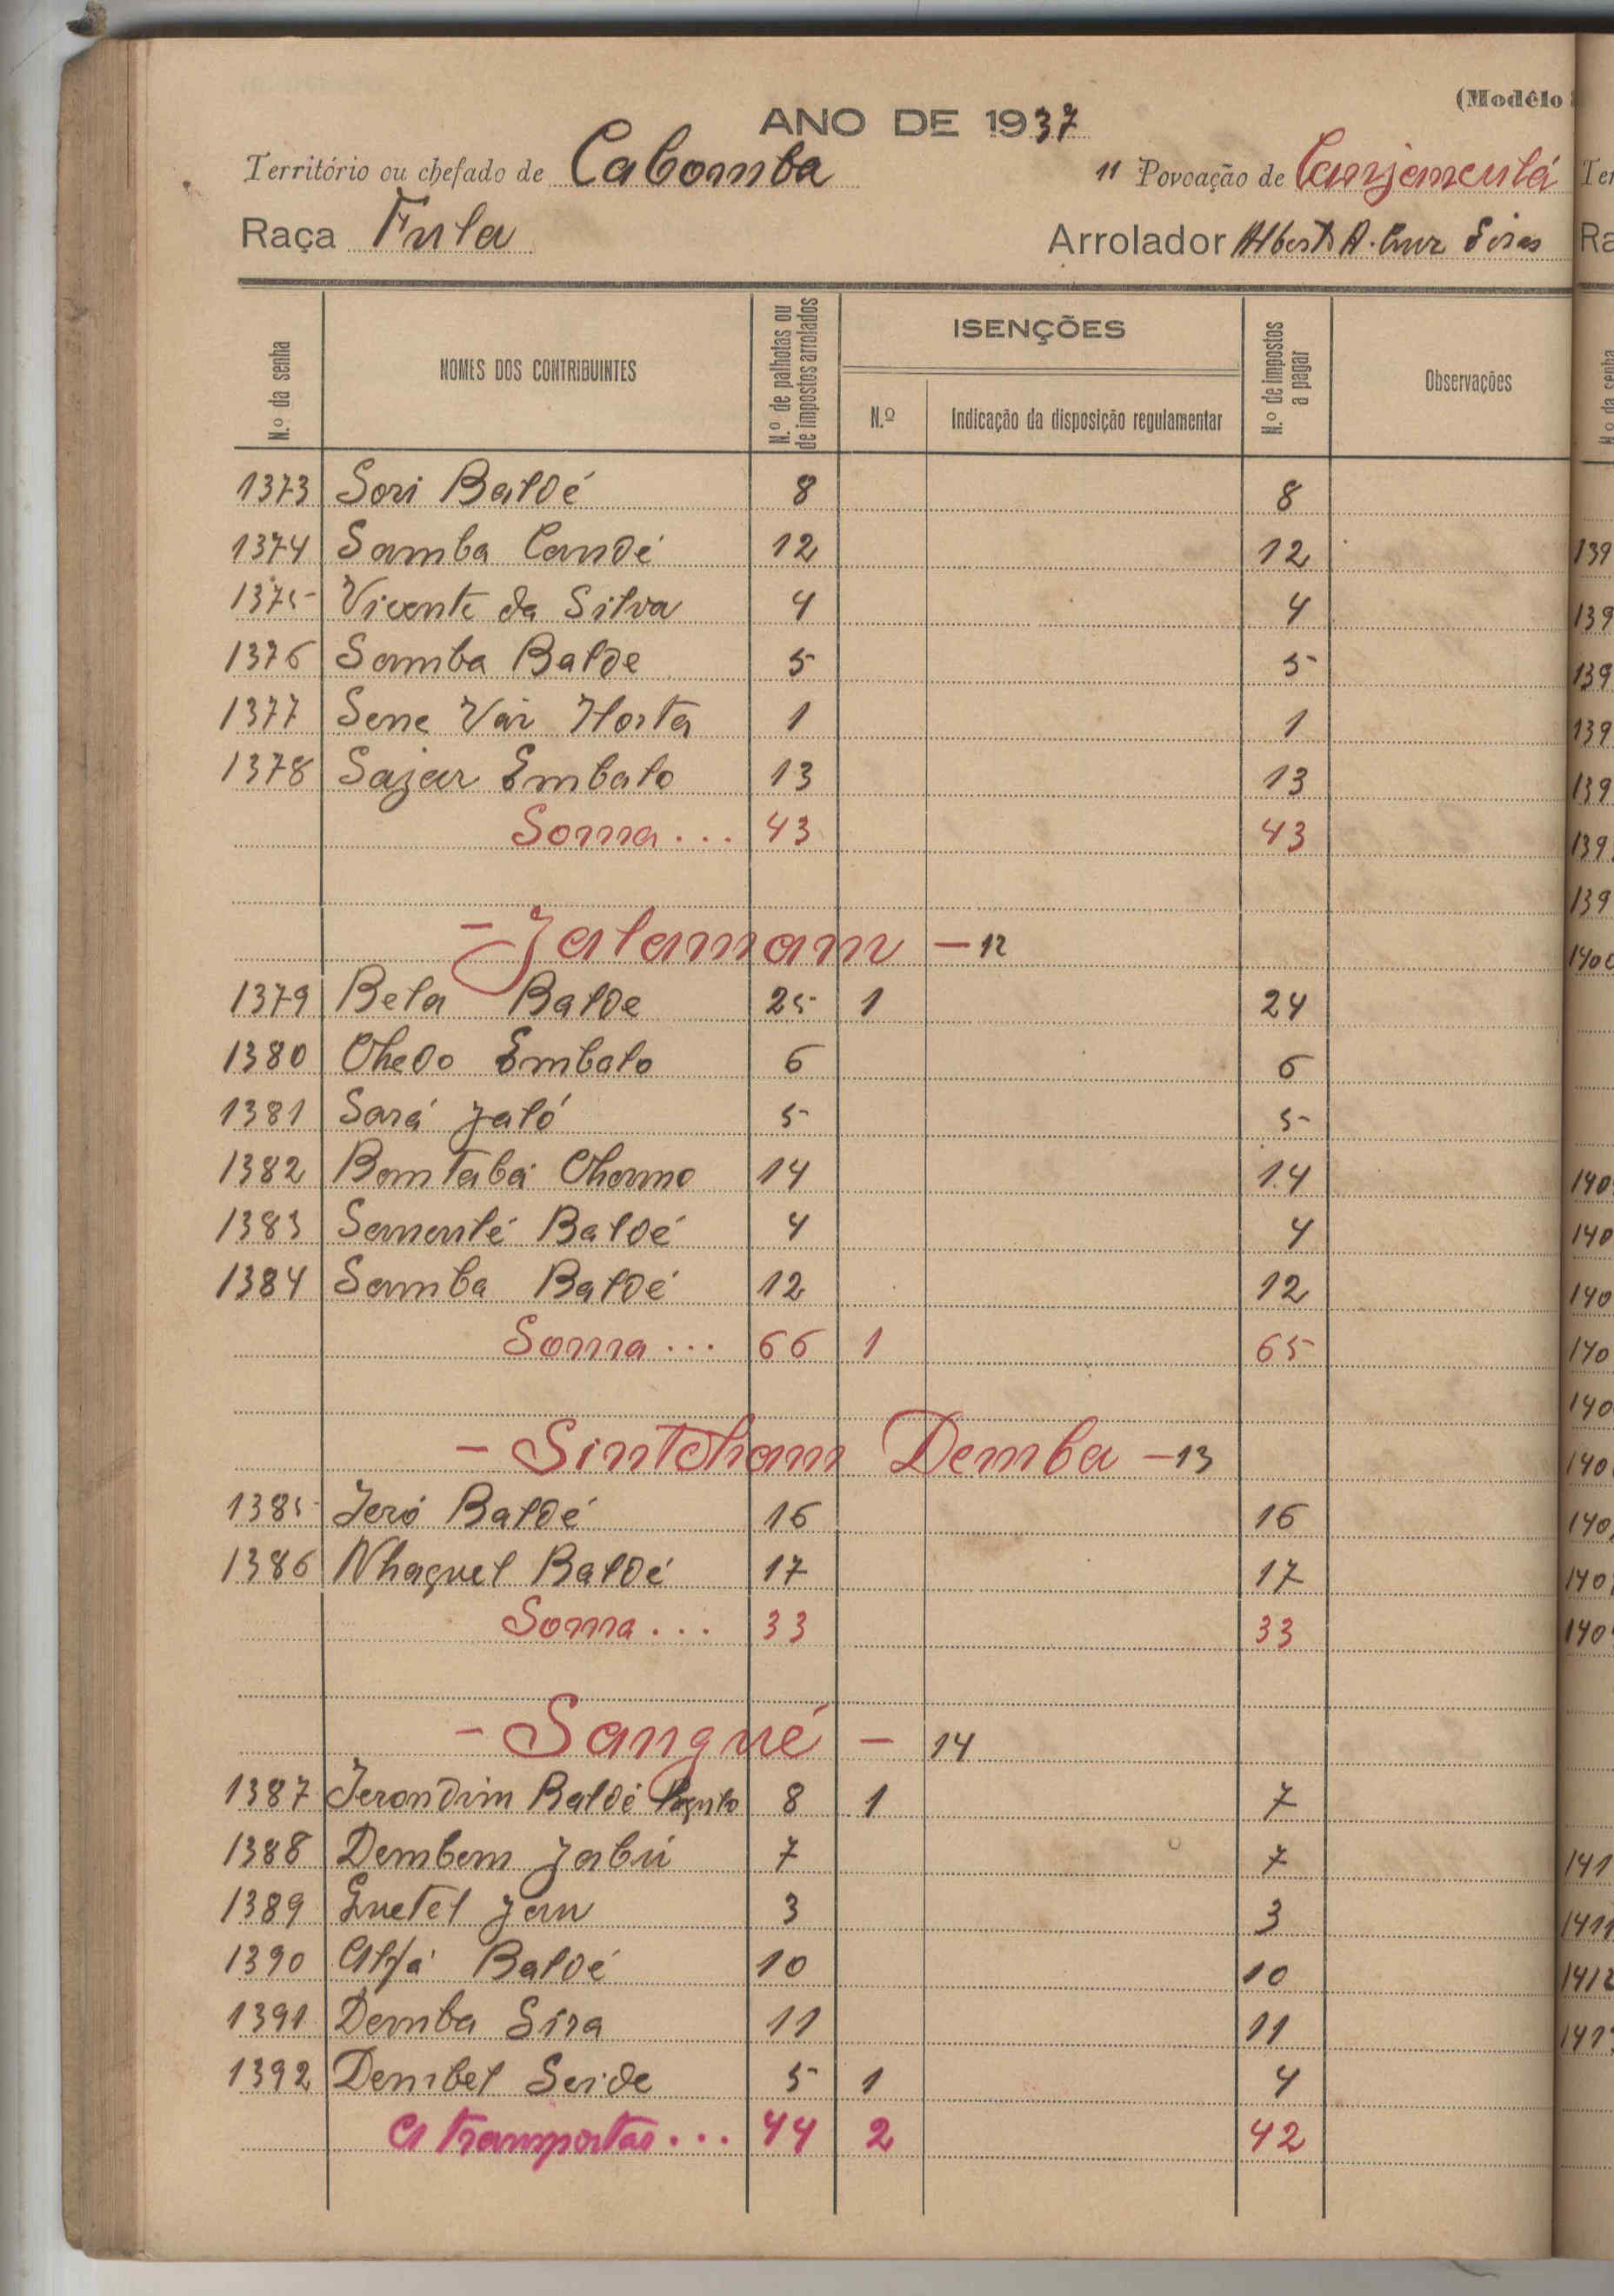 (Modêlo
ANO DE 1937
Território ou chefado de Cabomba 11 Povoação de Canjemculá
Raça Fula Arrolador Alberto A. Cruz
N.º da senha NOMES DOS CONTRIBUINTES N.º de palhotas ou de impostos arrolados ISENÇÕES N.º Indicação da disposição regulamentar N.º de impostos a pagar Observações
1373 Sori Baldé 8 8
1374 Samba Candé 12 12
1375 Vicente da Silva 4 4
1376 Samba Balde 5 5
1377 Sene Vai Horta 1 1
1378 Sajar Embalo 13 13
Soma... 43 43
- Jalamam - 12
1379 Bela Balde 25 1 24
1380 Chedo Embalo 6 6
1381 Sará Jaló 5 5
1382 Bamtabá Chamo 14 14
1383 Samanlé Baldé 4 4
1384 Samba Baldé 12 12
Soma... 66 1 65
- Sintcham Demba - 13
1385 Jeró Baldé 16 16
1386 Nhaguel Baldé 17 17
Soma... 33 33
- Sangué - 14
1387 Jerondim Baldé 8 1 7
1388 Dembem Jabú 7 7
1389 Guetel Jau 3 3
1390 Alfá Baldé 10 10
1391 Demba Sira 11 11
1392 Dembel Seide 5 1 4
A transportar... 44 2 42